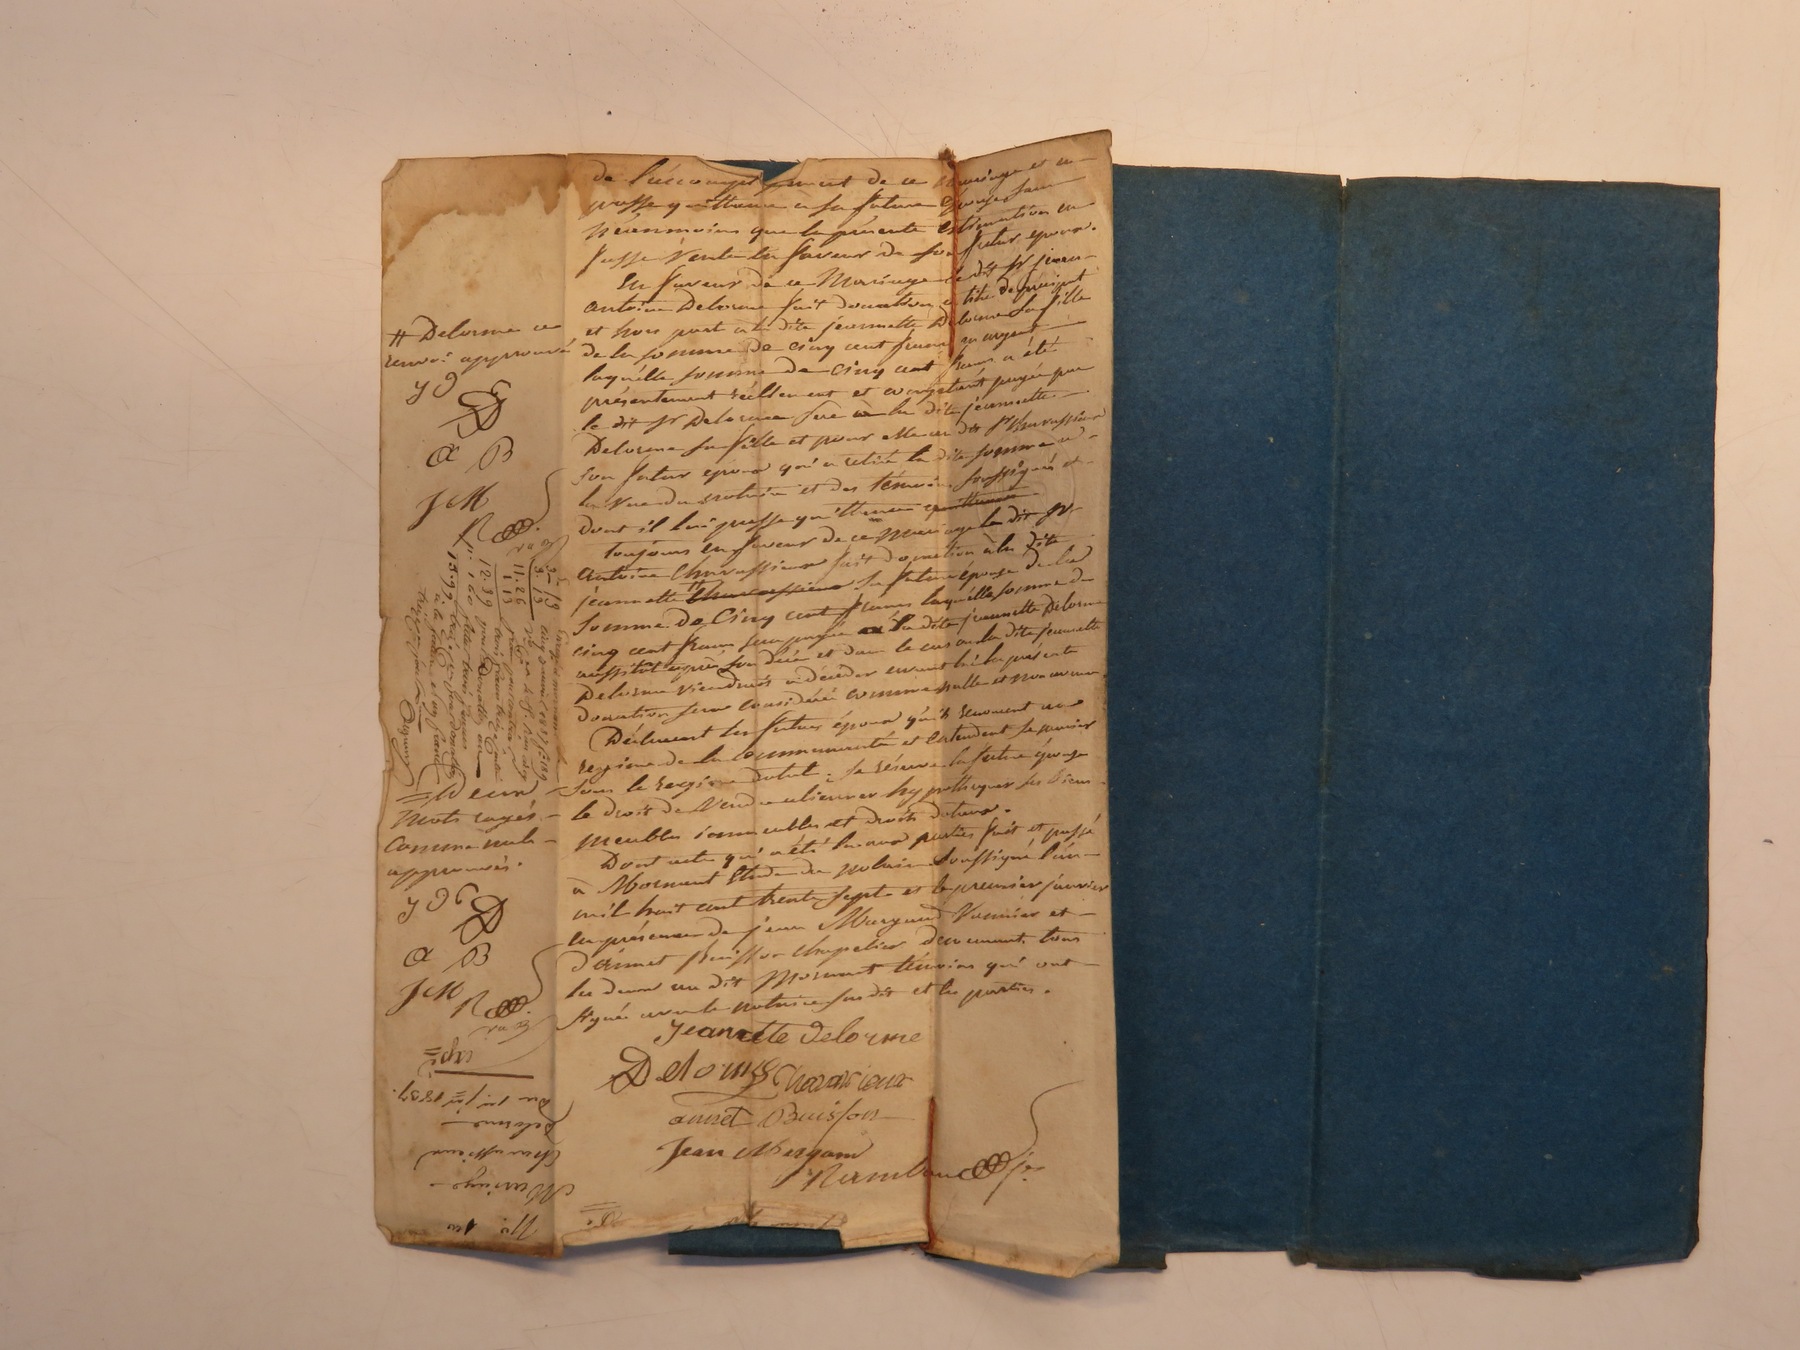 de l'accomplissement de ce mariage et en
passe quittance à sa future épouse sans
Néanmoins que la présente estimation en
fasse vente en faveur de son futur époux.
En faveur de ce Mariage le dit Sr jean
antoine Delorme fait donation à titre de préciput
et hors part à la dite jeannette Delorme sa fille
de la somme de cinq cent francs en argent
laquelle somme de cinq cent francs a été
présentement réellement et comptant payée par
le dit Sr Delorme père à la dite jeannette
Delorme sa fille et pour elle au dit Sr Chavassieux
son futur époux qui a retiré la dite somme à
la vue du notaire et des témoins soussignés et
dont il lui passe quittance
toujours en faveur de ce mariage le dit Sr
antoine Chavassieux fait donation à la dite
jeannette Chavassieux sa future épouse de la
somme de Cinq cent francs laquelle somme de
cinq cent francs sera payée à la dite jeannette Delorme
aussitôt après son décès et dans le cas où la dite jeannette
Delorme viendrait à décéder avant lui la présente
donation sera considérée comme nulle et non avenue
Déclarent les futurs époux qu'ils renoncent au
regime de la communauté et entendent se marier
sous le regime dotal ; se réserve la future épouse
le droit de vendre aliener hypothequer ses biens
meubles immeubles et droits dotaux.
Dont acte qui a été lu aux parties fait et passé
à Mornant Etude du notaire soussigné l'an
mil huit cent trente sept et le premier janvier
en présence de jean Murgand Vannier et
d'annet buisson chapelier demeurant tous
les deux au dit Mornant témoins qui ont
signé avec le notaire susdit et les parties.
Jeannete Delorme
Delorme Chavasieux
annet Buisson
Jean
# Delorme ce
renvoi approuvé
J D
D
A B
J M
R
= Deux
mots rayés
comme nuls
approuvés.
J D
D
A B
J M
R
13.99
12.39
1.60
11.26
1.13
Du 1er jer 1837.
Delorme
Chavassieux
Mariage